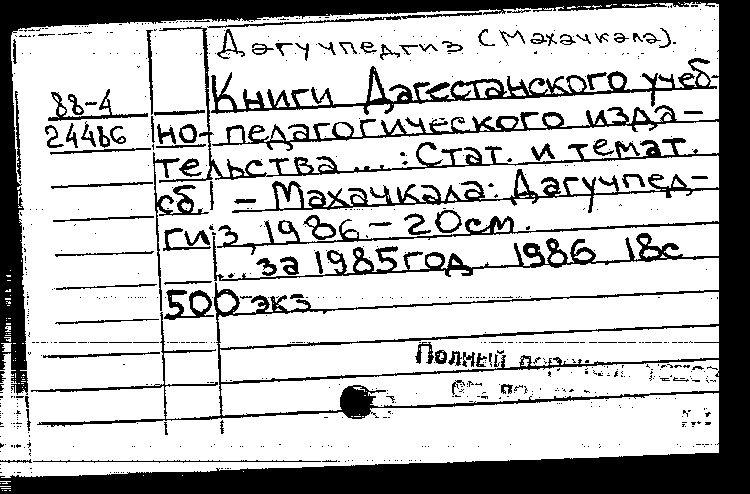 Дагучпедгиз (Махачкала).
Книги Дагестанского учеб-
88-4
24486
но-педагогического изда-
тельства ... : Стат. и темат.
сб. - Махачкала: Дагучпед-
гиз, 1986. - 20см.
... за 1985 год. 1986. 18с
500 экз.
Полный